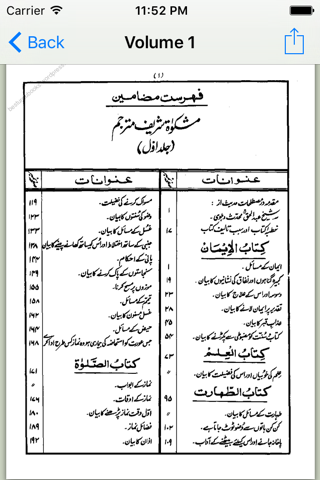 Carrier 11:52 PM
Back Volume 1
(۱)
فہرست مضامین
مشکوٰۃ شریف مترجم
(جلد اوّل)
عنوانات
۱
خطبہ کتاب اور سبب تالیف کتاب ۱۷
کتاب الایمان
ایمان کے مسائل۔ ۱
کبیرہ گناہوں اور نفاق کی نشانیوں کا بیان۔ ۱۹
وسوسہ اور اس کے علاج کا بیان۔ ۲۳
تقدیر پر ایمان لانے کا بیان۔ ۲۸
عذاب قبر کا بیان۔ ۴۵
کتاب و سنت کو مضبوطی سے پکڑنے کا بیان۔ ۵۴
کتاب العلم ۷۳
علم کی خوبیاں اور اس کی فضیلت کا بیان۔ 〃
کتاب الطہارت ۹۵
طہارت کے مسائل کا بیان۔ 〃
کن کن باتوں سے وضو ٹوٹ جاتا ہے۔ ۱۰۲
پاخانہ جانے اور اس کیلئے بیٹھنے کے آداب۔ ۱۰۹
عنوانات
مسواک کرنے کی فضیلت۔ ۱۱۹
وضو کی سنتوں کا بیان۔ ۱۲۳
غسل کے مسائل کا بیان۔ ۱۳۳
جنبی کے ساتھ اختلاط اور اس کیساتھ کھانے پینے کا بیان ۱۳۸
پانی کے احکام۔ ۱۴۳
نجاستوں کے پاک کرنے کا بیان۔
موزوں پر مسح کرنا۔ ۱۵۵
تیمم کے مسائل۔ ۱۵۸
غسل مسنون کا بیان۔
حیض کے مسائل۔ ۱۶۴
جس عورت کو استحاضہ کی بیماری ہو وہ نماز کس طرح ادا کرے ۱۶۸
کتاب الصلوٰۃ ۱۷۱
نماز کے ابواب۔ 〃
نماز کے اوقات۔ ۱۷۶
اوّل وقت نماز پڑھنے کا بیان۔ ۱۸۰
فضائل نماز۔ ۱۸۹
اذان کا بیان۔ ۱۹۲